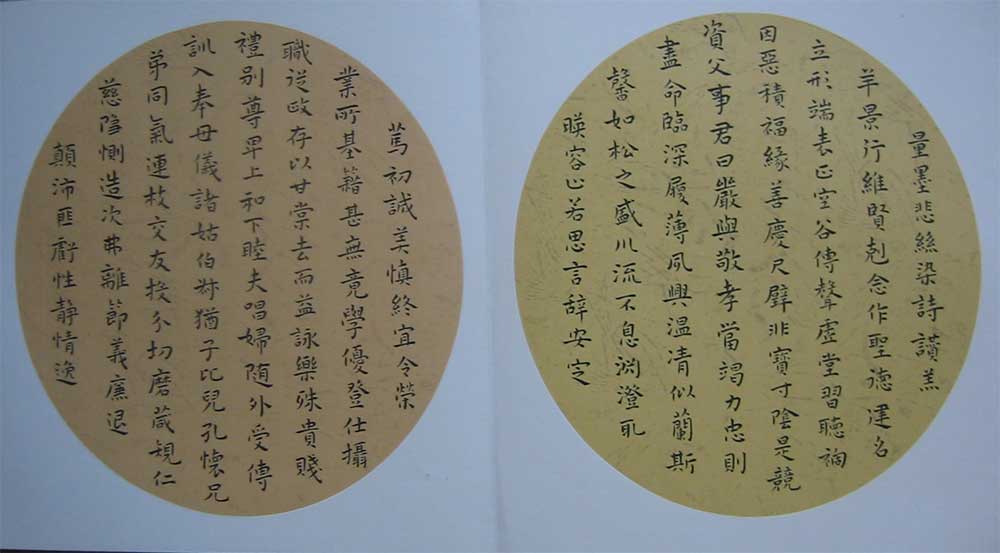 量墨悲絲染詩讚羔
羊景行維賢剋念作聖德建名
立形端表正空谷傳聲虛堂習聽禍
因惡積福緣善慶尺璧非寶寸陰是競
資父事君曰嚴與敬孝當竭力忠則
盡命臨深履薄夙興溫凊似蘭斯
馨如松之盛川流不息淵澄取
暎容止若思言辭安定
篤初誠美慎終宜令榮
業所基籍甚無竟學優登仕攝
職從政存以甘棠去而益詠樂殊貴賤
禮別尊卑上和下睦夫唱婦隨外受傅
訓入奉母儀諸姑伯叔猶子比兒孔懷兄
弟同氣連枝交友投分切磨箴規仁
慈隱惻造次弗離節義廉退
顛沛匪虧性靜情逸